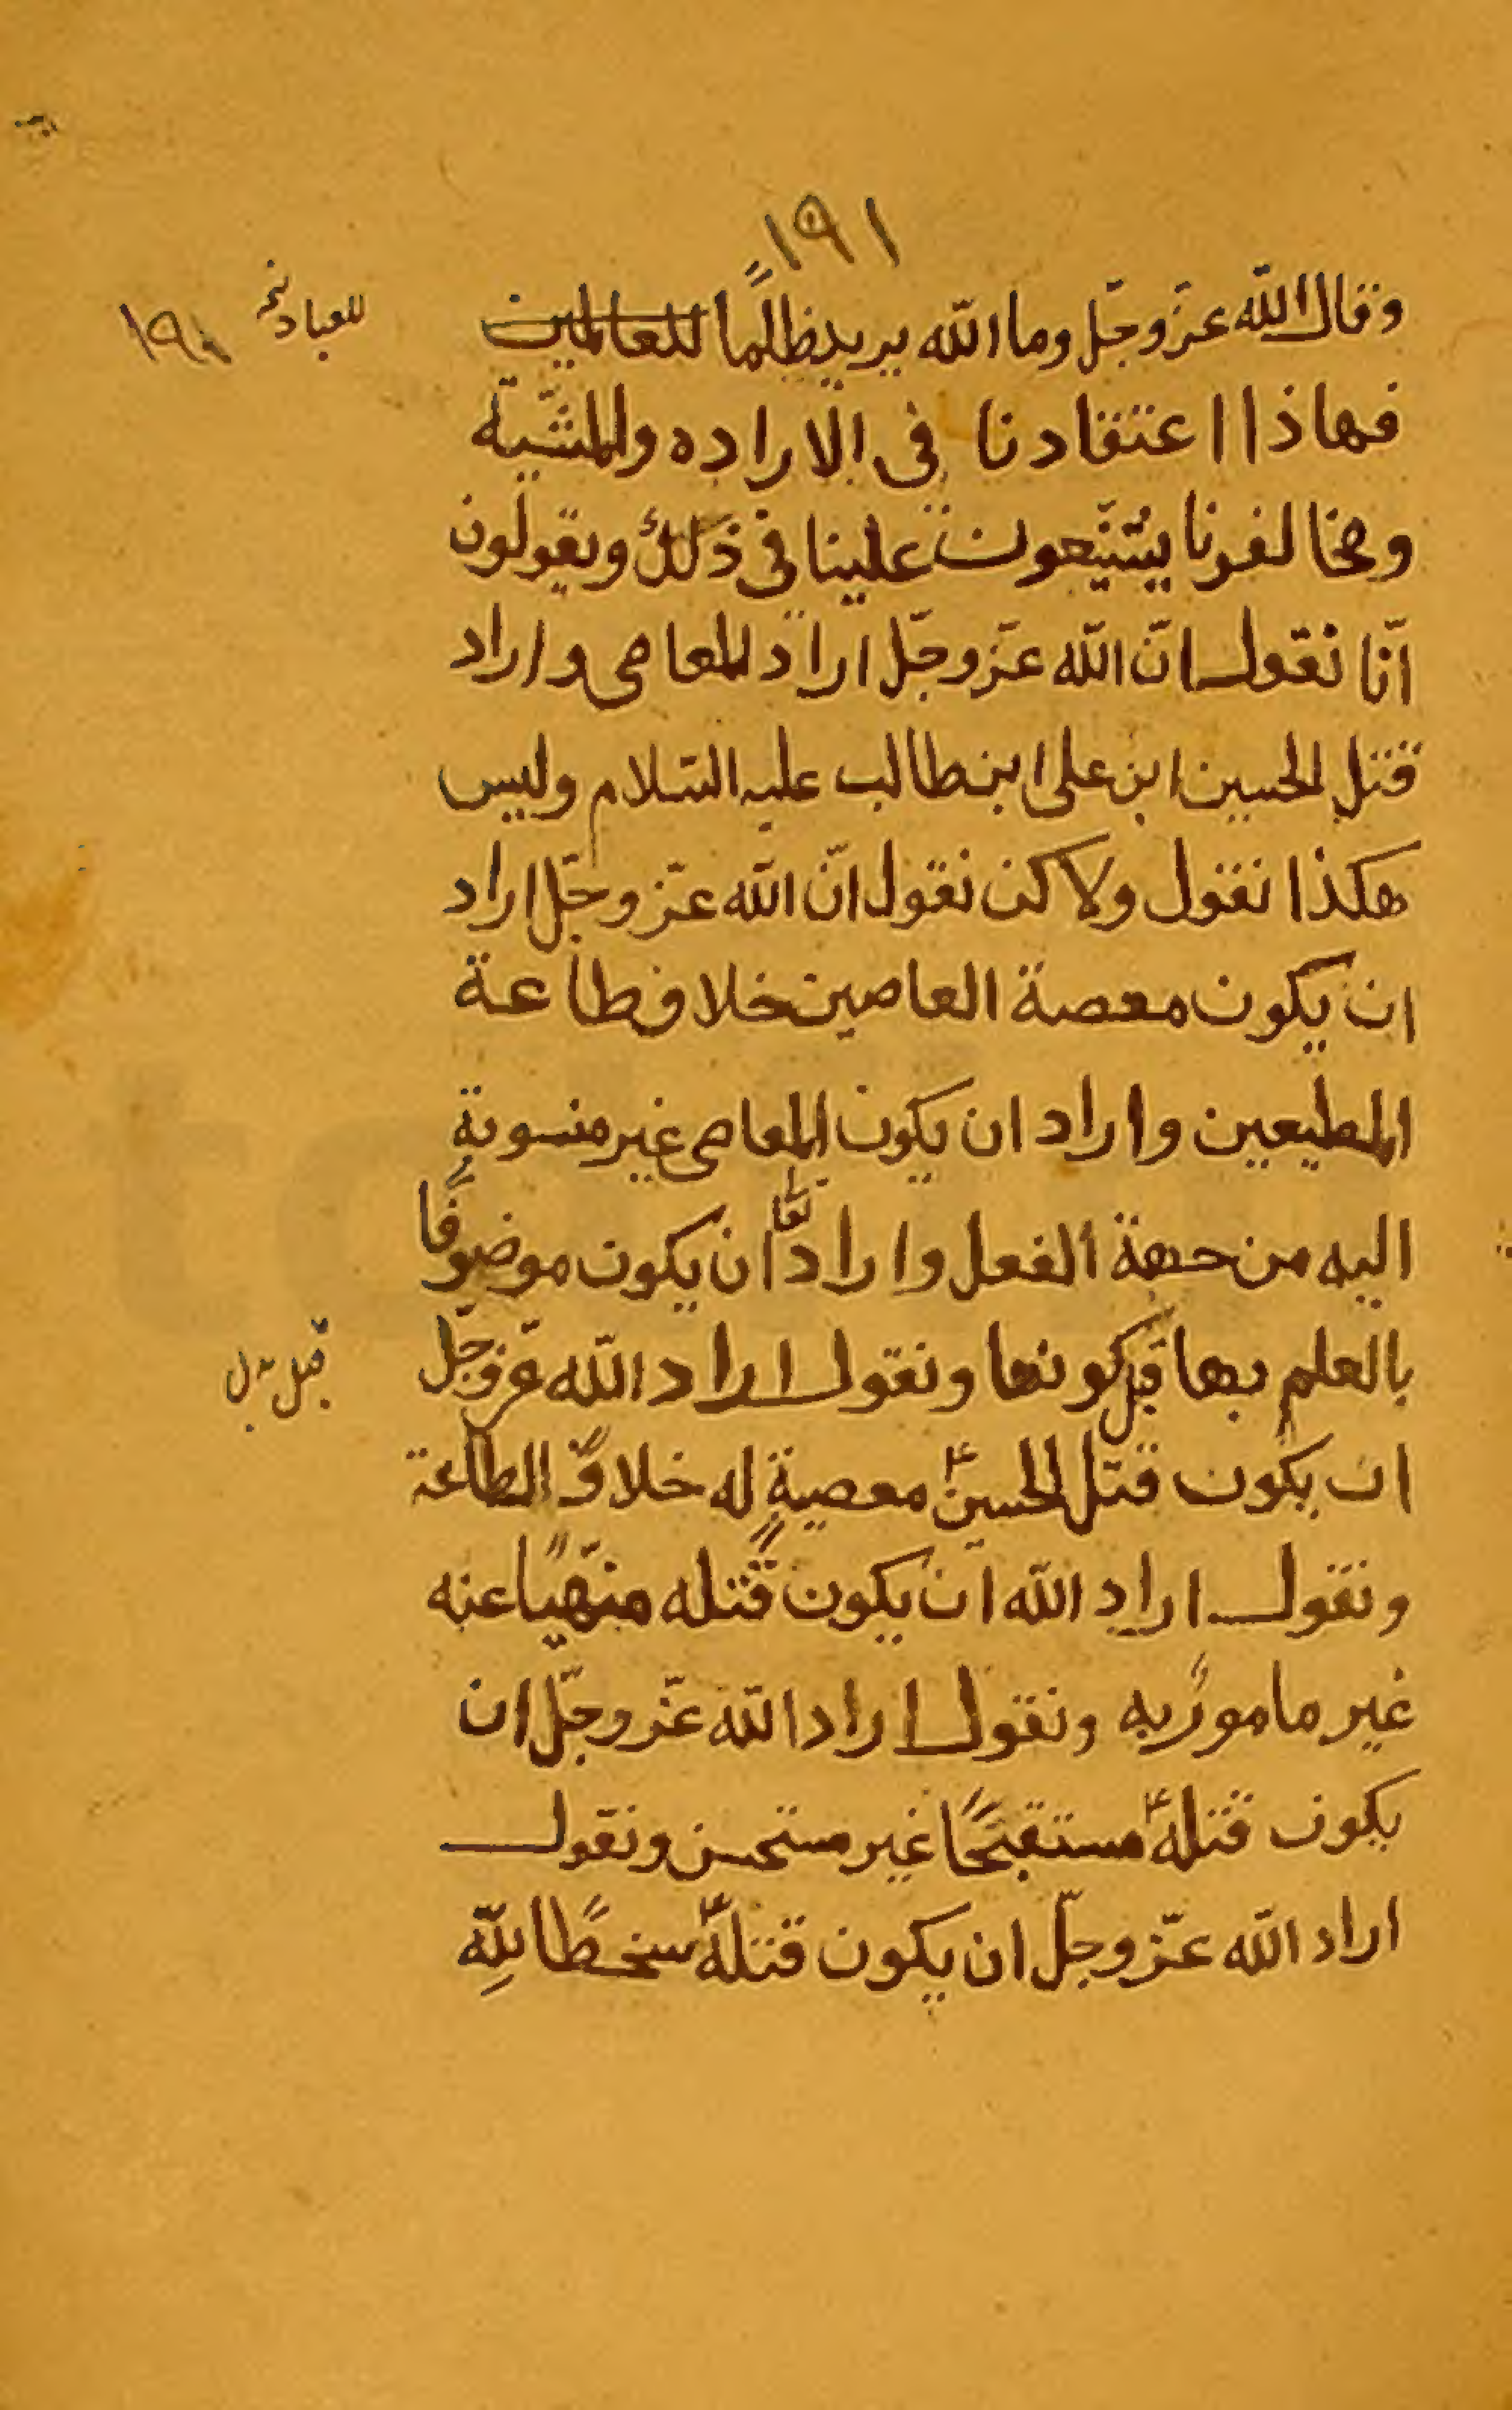 ١٩١
وقال الله عزّ وجّل وما الله يريد ظلمًا للعالمين
للعباد نخ
١٩١
فهاذا اعتقادنا فى الاراده والمشّية
ومخالفونا يشنّعون علينا فى ذلك ويقولون
انّا نقول انّ الله عزّ وجّل اراد المعاصى واراد
قتل الحسين ابن على ابن طالب عليه السّلام وليس
هكذا نقول ولاكن نقول انّ الله عزّ وجّل اراد
ان يكون معصة العاصين خلاف طاعة
المطيعين واراد ان يكون المعاصى غير منسوبة
اليه من جهة الفعل واراد تعا ان يكون موضوفًا
بالعلم بها قبل كونها ونقول اراد الله عزّ وجّل
قبل
ان يكون قتل الحسينؑ معصية له خلاف الطاعة
ونقول اراد الله ان يكون قتله منهّيًا عنه
غير مامور به ونقول اراد الله عزّ وجّل ان
يكون قتلهؑ مستقبحًا غير مستحسن ونقول
اراد الله عزّ وجّل ان يكون قتلهؑ سخطًا لله